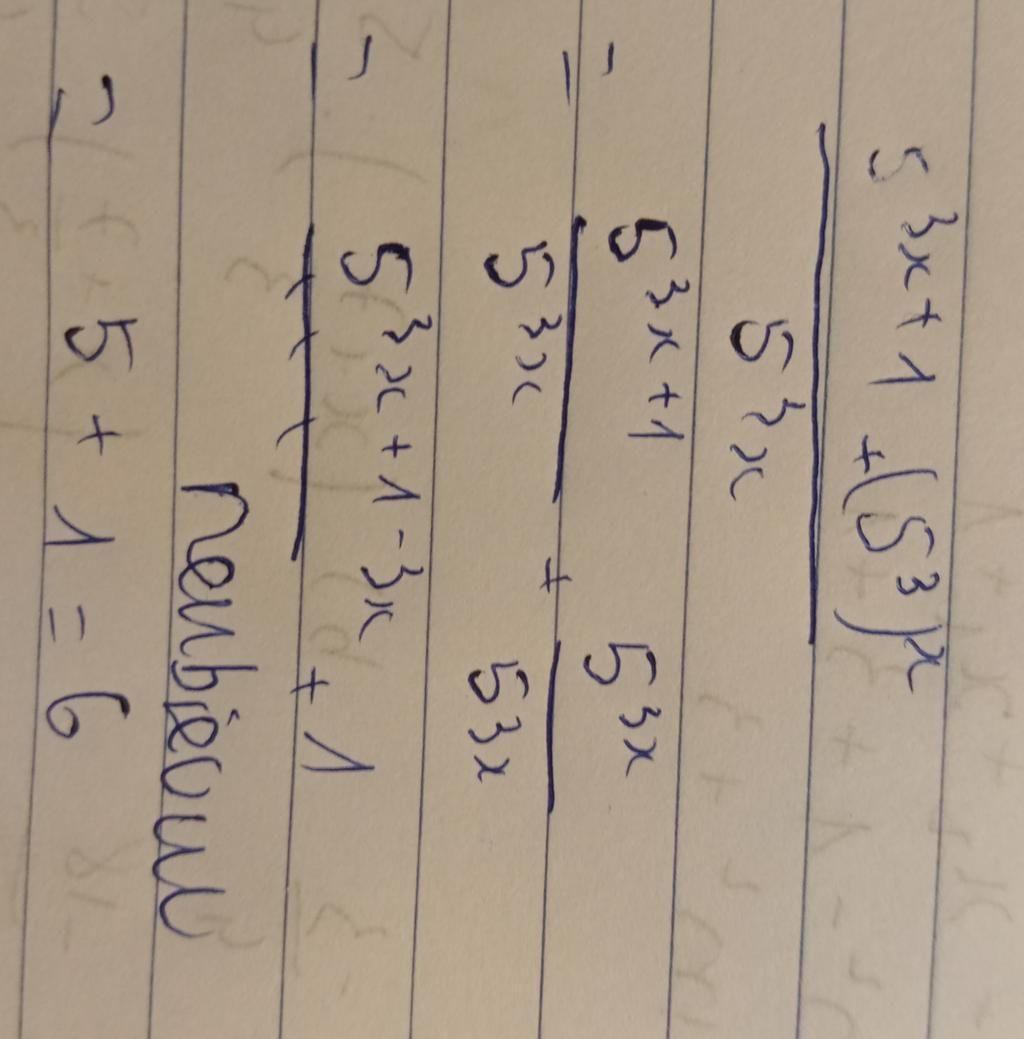 5^{3x+1} + (5^3)^x
5^{3x}
= 5^{3x+1} + 5^{3x}
5^{3x} 5^{3x}
= 5^{3x+1-3x} + 1
= 5 + 1 = 6